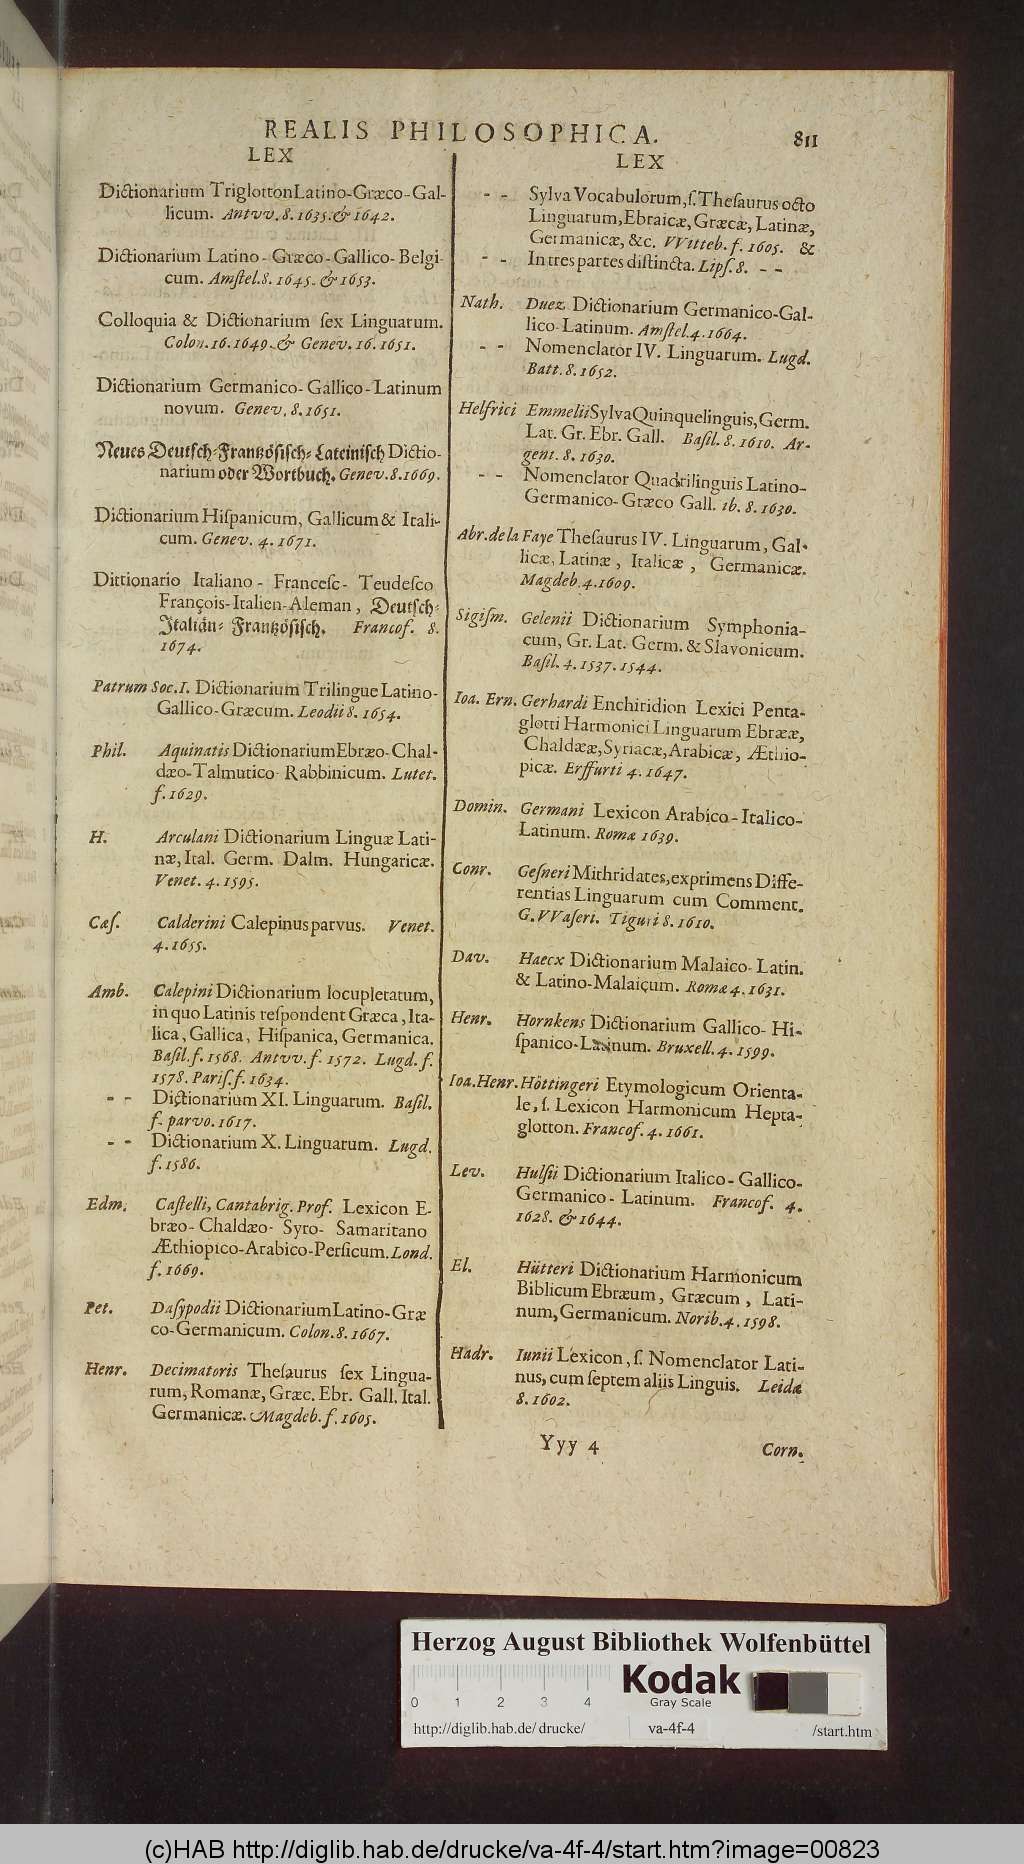 REALIS PHILOSOPHICA. 811
LEX
Dictionarium Triglotton Latino-Græco-Gal-
licum. Antvv. 8. 1635. & 1642.
Dictionarium Latino-Græco-Gallico-Belgi-
cum. Amſtel. 8. 1645. & 1653.
Colloquia & Dictionarium ſex Linguarum.
Colon. 16. 1649. & Genev. 16. 1651.
Dictionarium Germanico-Gallico-Latinum
novum. Genev. 8. 1651.
Neues Deutſch-Frantzöſiſch-Lateiniſch Dictio-
narium oder Wortbuch. Genev. 8. 1669.
Dictionarium Hiſpanicum, Gallicum & Itali-
cum. Genev. 4. 1671.
Dittionario Italiano-Franceſc-Teudeſco
François-Italien-Aleman, Deutſch-
Italiän-Frantzöſiſch. Francof. 8.
1674.
Patrum Soc. I. Dictionarium Trilingue Latino-
Gallico-Græcum. Leodii 8. 1654.
Phil. Aquinatis Dictionarium Ebræo-Chal-
dæo-Talmutico-Rabbinicum. Lutet.
f. 1629.
H. Arculani Dictionarium Linguæ Lati-
næ, Ital. Germ. Dalm. Hungaricæ.
Venet. 4. 1595.
Cæſ. Calderini Calepinus parvus. Venet.
4. 1655.
Amb. Calepini Dictionarium locupletatum,
in quo Latinis reſpondent Græca, Ita-
lica, Gallica, Hiſpanica, Germanica.
Baſil. f. 1568. Antvv. f. 1572. Lugd. f.
1578. Pariſ. f. 1634.
- - Dictionarium XI. Linguarum. Baſil.
f. parvo. 1617.
- - Dictionarium X. Linguarum. Lugd.
f. 1586.
Edm. Caſtelli, Cantabrig. Prof. Lexicon E-
bræo-Chaldæo-Syro-Samaritano
Æthiopico-Arabico-Perſicum. Lond.
f. 1669.
Pet. Daſypodii Dictionarium Latino-Græ
co-Germanicum. Colon. 8. 1667.
Henr. Decimatoris Theſaurus ſex Lingua-
rum, Romanæ, Græc. Ebr. Gall. Ital.
Germanicæ. Magdeb. f. 1605.
LEX
- - Sylva Vocabulorum, ſ. Theſaurus octo
Linguarum, Ebraicæ, Græcæ, Latinæ,
Germanicæ, &c. VVitteb. f. 1605. &
- - In tres partes diſtincta. Lipſ. 8. - -
Nath. Duez Dictionarium Germanico-Gal-
lico-Latinum. Amſtel. 4. 1664.
- - Nomenclator IV. Linguarum. Lugd.
Batt. 8. 1652.
Helfrici Emmelii Sylva Quinquelinguis, Germ.
Lat. Gr. Ebr. Gall. Baſil. 8. 1610. Ar-
gent. 8. 1630.
- - Nomenclator Quadrilinguis Latino-
Germanico-Græco Gall. ib. 8. 1630.
Abr. de la Faye Theſaurus IV. Linguarum, Gal-
licæ, Latinæ, Italicæ, Germanicæ.
Magdeb. 4. 1609.
Sigiſm. Gelenii Dictionarium Symphonia-
cum, Gr. Lat. Germ. & Slavonicum.
Baſil. 4. 1537. 1544.
Ioa. Ern. Gerhardi Enchiridion Lexici Penta-
glotti Harmonici Linguarum Ebrææ,
Chaldææ, Syriacæ, Arabicæ, Æthio-
picæ. Erffurti 4. 1647.
Domin. Germani Lexicon Arabico-Italico-
Latinum. Romæ 1639.
Conr. Geſneri Mithridates, exprimens Diffe-
rentias Linguarum cum Comment.
G. VVaſeri. Tiguri 8. 1610.
Dav. Haecx Dictionarium Malaico-Latin.
& Latino-Malaicum. Romæ 4. 1631.
Henr. Hornkens Dictionarium Gallico-Hi-
ſpanico-Latinum. Bruxell. 4. 1599.
Ioa. Henr. Höttingeri Etymologicum Orienta-
le, ſ. Lexicon Harmonicum Hepta-
glotton. Francof. 4. 1661.
Lev. Hulſii Dictionarium Italico-Gallico-
Germanico-Latinum. Francof. 4.
1628. & 1644.
El. Hütteri Dictionarium Harmonicum
Biblicum Ebræum, Græcum, Lati-
num, Germanicum. Norib. 4. 1598.
Hadr. Iunii Lexicon, ſ. Nomenclator Lati-
nus, cum ſeptem aliis Linguis. Leidæ
8. 1602.
Yyy 4 Corn.
Herzog August Bibliothek Wolfenbüttel
0 1 2 3 4
Kodak
Gray Scale
http://diglib.hab.de/drucke/ va-4f-4 /start.htm
(c)HAB http://diglib.hab.de/drucke/va-4f-4/start.htm?image=00823